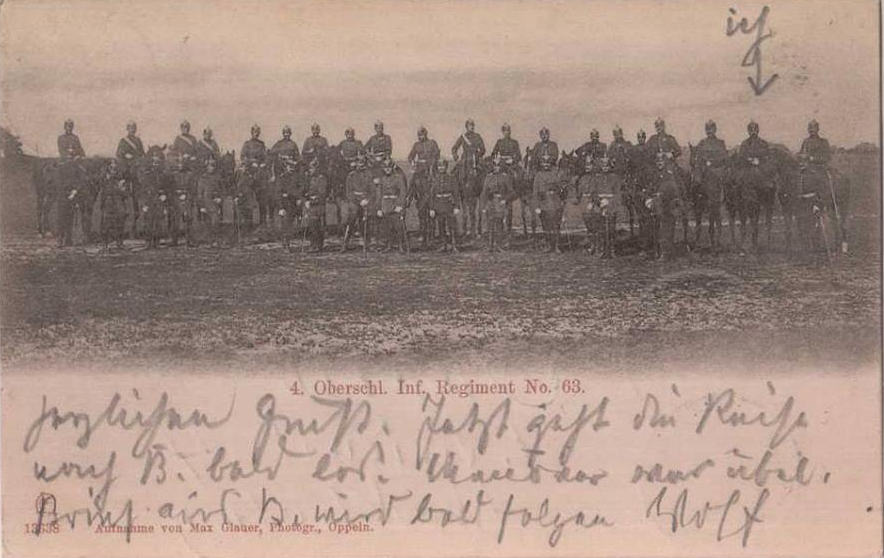 ich
4. Oberschl. Inf. Regiment No. 63.
Herzlichen Gruß. Jetzt geht die Reise
nach B. bald los. Manöver war übel.
Brief aus B. wird bald folgen Wolf
13638 Aufnahme von Max Glauer, Photogr., Oppeln.